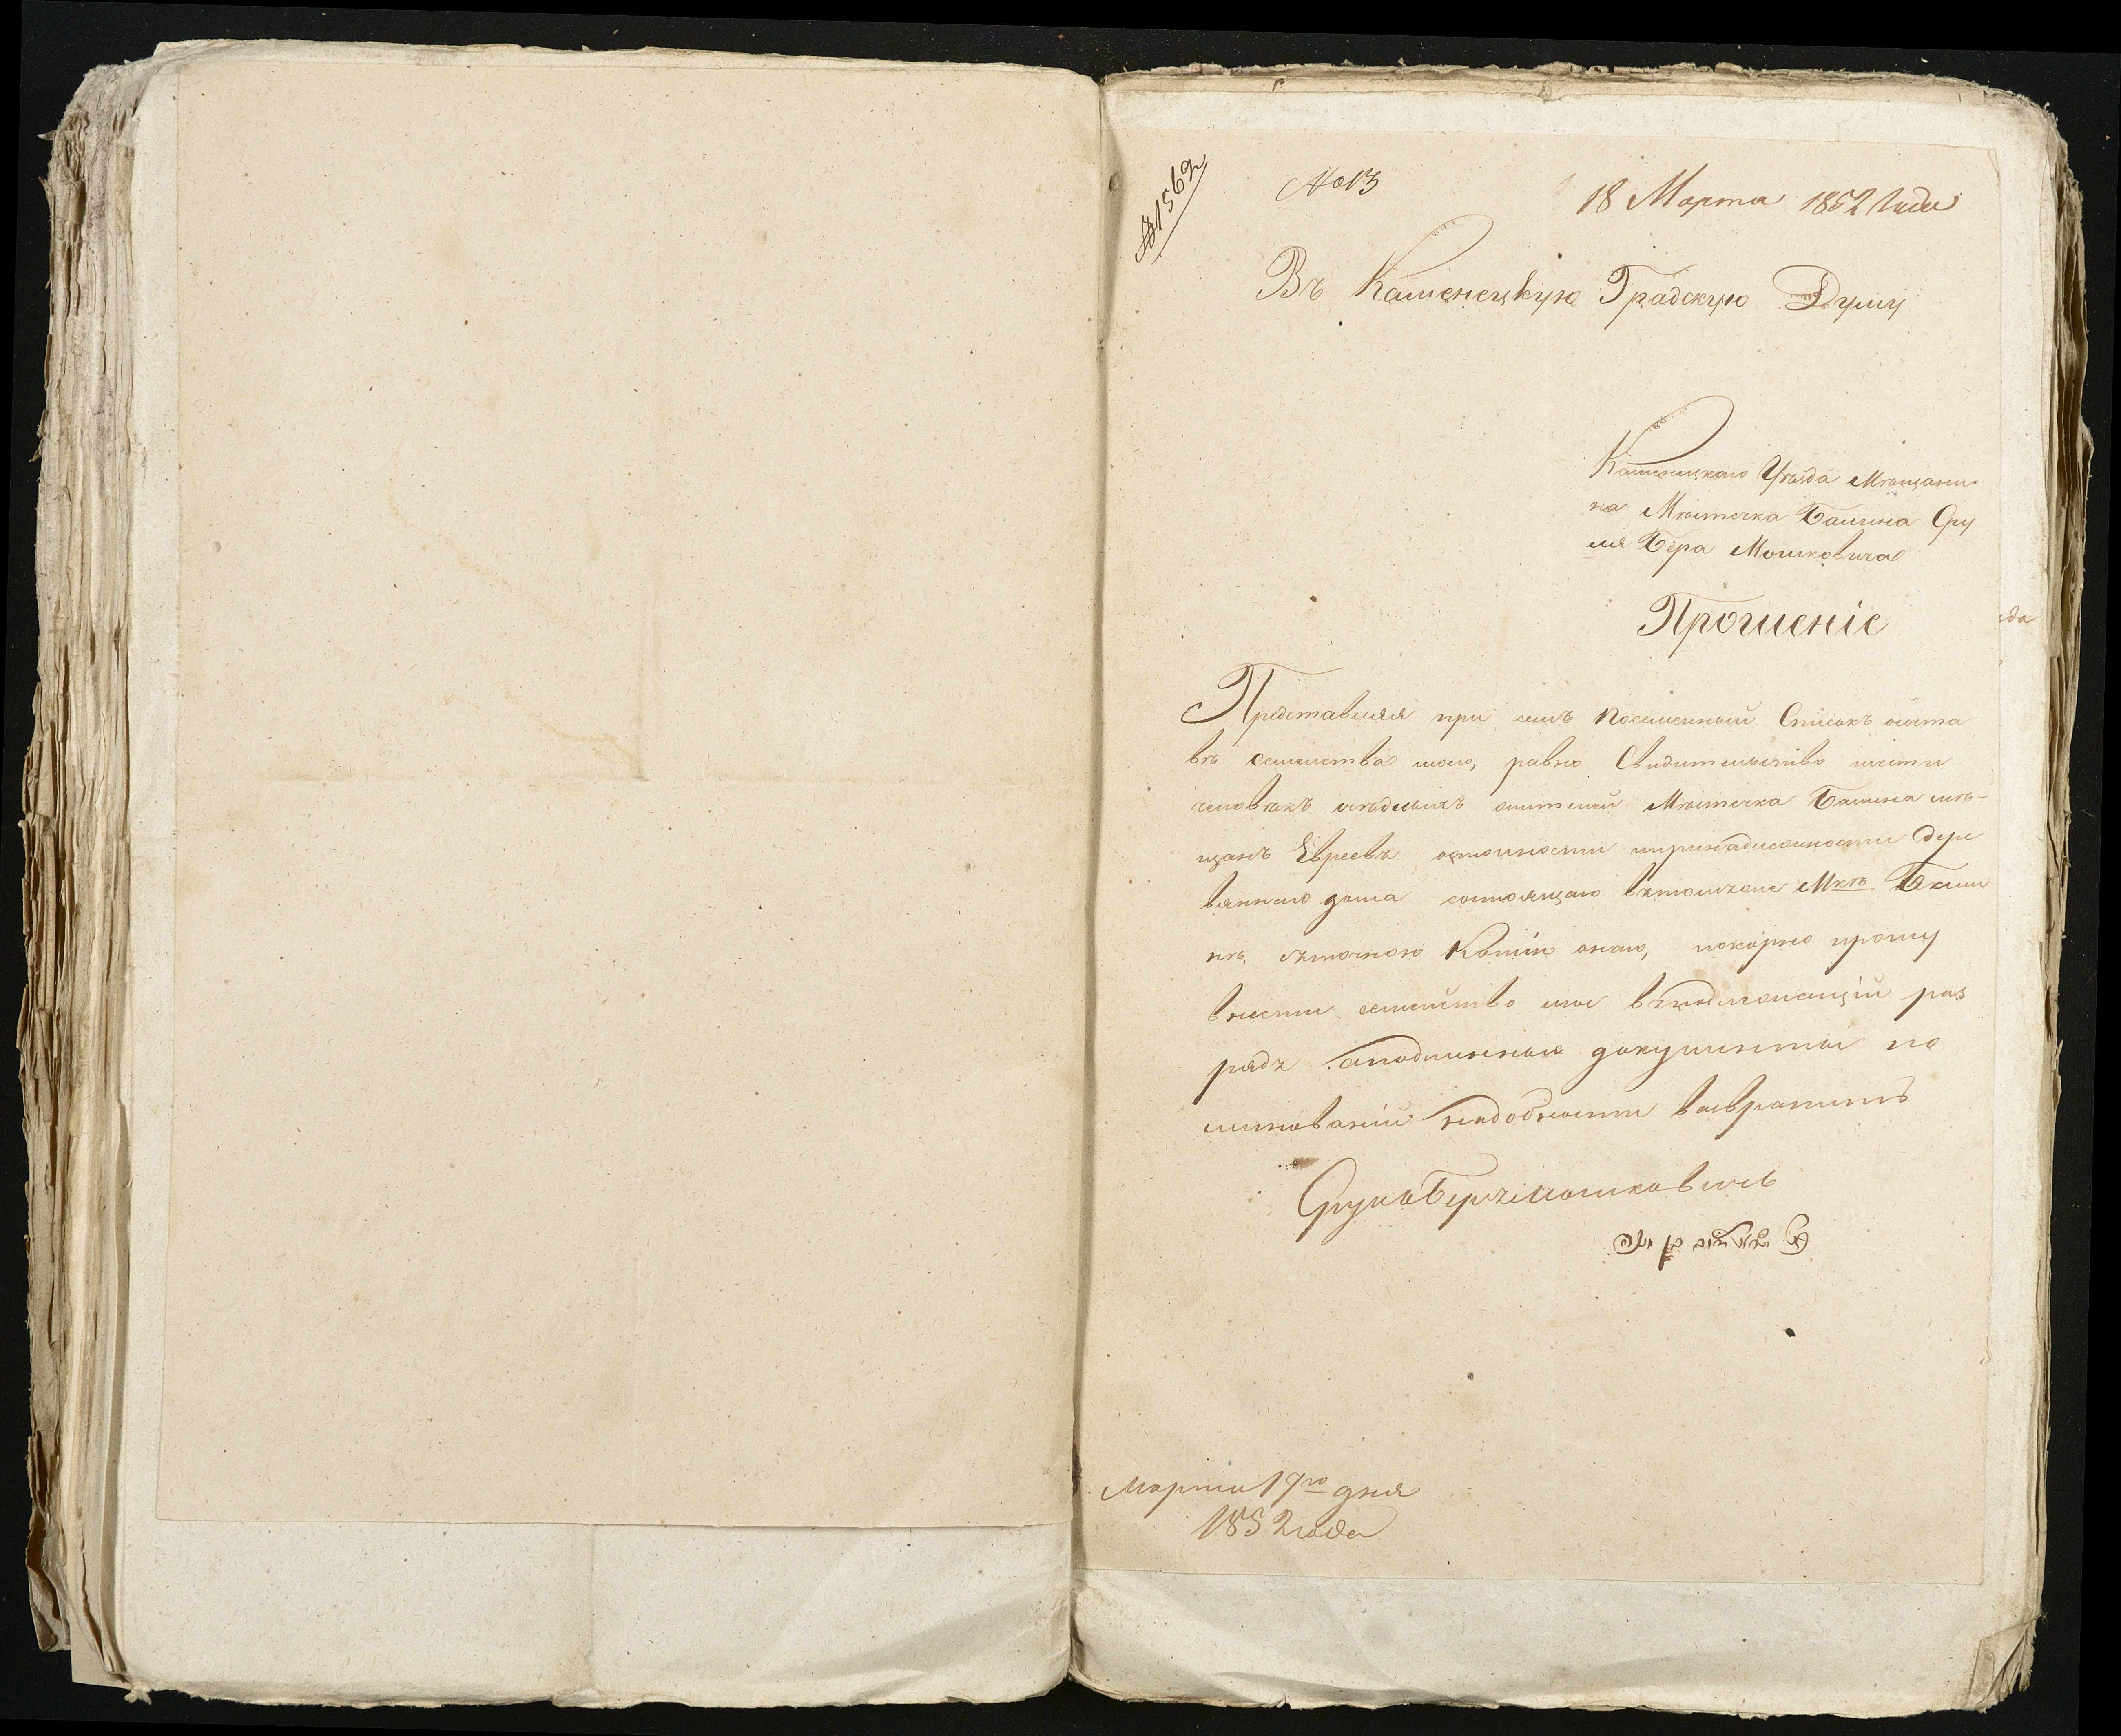 № 1562
№ 13
18 Марта 1852 Года
Въ Каменецкую Градскую Думу
Каменецкаго Уѣзда Мѣщани-
на Мѣстечка Балина Сру
ля Бера Мошковича
Прошеніе
Представляя при семъ посемейный Списокъ о соста
вѣ семейства моего, равно Свидительство шести
человѣкъ осѣдлыхъ жителей Мѣстечка Балина мѣ-
щанъ Евреевъ принадлежности дере
вяннаго дома состоящаго втомъ же Мкѣ Бали
нѣ, съ точною Копіею онаго, покорно прошу
внести семейство мое въ подлежащій раз
рядъ а подлинные документы по
минованіи надобности возвратить
Сруль Беръ Мошковичъ
Марта 17го дня
1852 года
да